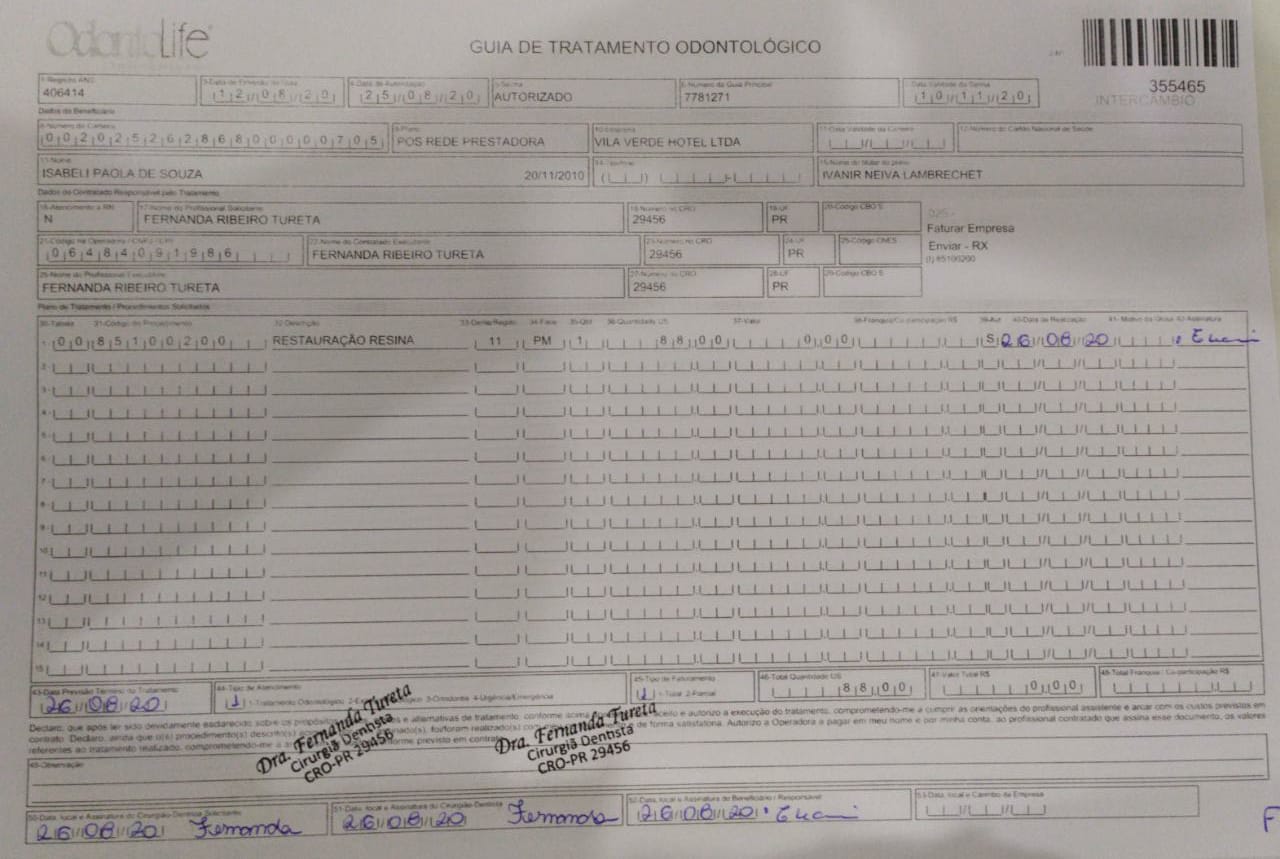 OdontoLife
GUIA DE TRATAMENTO ODONTOLÓGICO
355465
INTERCÂMBIO
1-Registro ANS
406414
12/08/20
4-Data de Autorização
25/08/20
5-Senha
AUTORIZADO
6-Número da Guia Principal
7781271
Data Validade da Senha
10/11/20
Dados do Beneficiário
8-Número da Carteira
00202526286800000705
9-Plano
POS REDE PRESTADORA
10-Empresa
VILA VERDE HOTEL LTDA
11-Data Validade da Carteira
12-Número do Cartão Nacional de Saúde
13-Nome
ISABELI PAOLA DE SOUZA 20/11/2010
14-Telefone
15-Nome do titular do plano
IVANIR NEIVA LAMBRECHET
Dados do Contratado Responsável pelo Tratamento
16-Atendimento a RN
N
17-Nome do Profissional Solicitante
FERNANDA RIBEIRO TURETA
18-Número no CRO
29456
19-UF
PR
20-Código CBO S
025 -
Faturar Empresa
Enviar - RX
(I) 85100200
21-Código na Operadora / CNPJ / CPF
06484091986
22-Nome do Contratado Executante
FERNANDA RIBEIRO TURETA
23-Número no CRO
29456
24-UF
PR
25-Código CNES
26-Nome do Profissional Executante
FERNANDA RIBEIRO TURETA
27-Número no CRO
29456
28-UF
PR
29-Código CBO S
Plano de Tratamento / Procedimentos Solicitados
30-Tabela 31-Código do Procedimento 32-Descrição 33-Dente/Região 34-Face 35-Qtd 36-Quantidade US 37-Valor 38-Franquia/Co-participação R$ 39-Aut 40-Data de Realização 41- Motivo da Glosa 42-Assinatura
1- 00 85100200 RESTAURAÇÃO RESINA 11 PM 1 88 00 0 00 S 26/08/20
2-
3-
4-
5-
6-
7-
8-
9-
10-
11-
12-
13-
14-
15-
43-Data Previsão Término do Tratamento
26/08/20
44-Tipo de Atendimento
1 1-Tratamento Odontológico 3-Ortodontia 4-Urgência/Emergência
45-Tipo de Faturamento
1 1-Total 2-Parcial
46-Total Quantidade US
88 00
47-Valor Total R$
0 00
48-Total Franquia / Co-participação R$
Declaro, que após ter sido devidamente esclarecido sobre os propósitos e alternativas de tratamento, conforme acima aceito e autorizo a execução do tratamento, comprometendo-me a cumprir as orientações do profissional assistente e arcar com os custos previstos em
contrato. Declaro, ainda que o(s) procedimento(s) descrito(s) foi/foram realizado(s) de forma satisfatória. Autorizo a Operadora a pagar em meu nome e por minha conta, ao profissional contratado que assina esse documento, os valores
referentes ao tratamento realizado, comprometendo-me a previsto em contrato
Dra. Fernanda Tureta
Cirurgiã Dentista
CRO-PR 29456
Dra. Fernanda Tureta
Cirurgiã Dentista
CRO-PR 29456
49-Observação
50-Data, local e Assinatura do Cirurgião-Dentista Solicitante
26/08/20 Fernanda
51-Data, local e Assinatura do Cirurgião-Dentista
26/08/20 Fernanda
52-Data, local e Assinatura do Beneficiário / Responsável
26/08/20
53-Data, local e Carimbo da Empresa
F